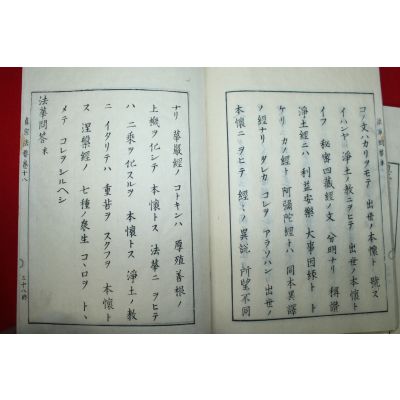 コノ文ハカリヲモテ 出世ノ本懷ト 號ス
イハンヤ 淨土ノ教ニヲヒテ 出世ノ本懷ト
イフ 秘密四藏經ノ文 分明ナリ 稱讃
淨土經ニハ 利益安樂 大事因縁ト ト
ケリ カノ經ト 阿彌陀經トハ 同本異譯
ノ經ナリ タレカ コレヲ アラソハン 出世ノ
本懷ニヲヒテ 經〻ノ異説 所望不同
ナリ 華嚴經ノ コトキンハ 厚殖善根ノ
上機ヲ 化シテ 本懷トス 法華ニ ヲヒテ
ハ 二乘ヲ 化スルヲ 本懷トス 淨土ノ教
ニ イタリテハ 重苦ヲ スクフヲ 本懷ト
ス 涅槃經ノ 七種ノ衆生 コヽロヲ トヽ
メテ コレヲ シルヘシ
法華問答 末
眞宗法要卷十八
三十八終